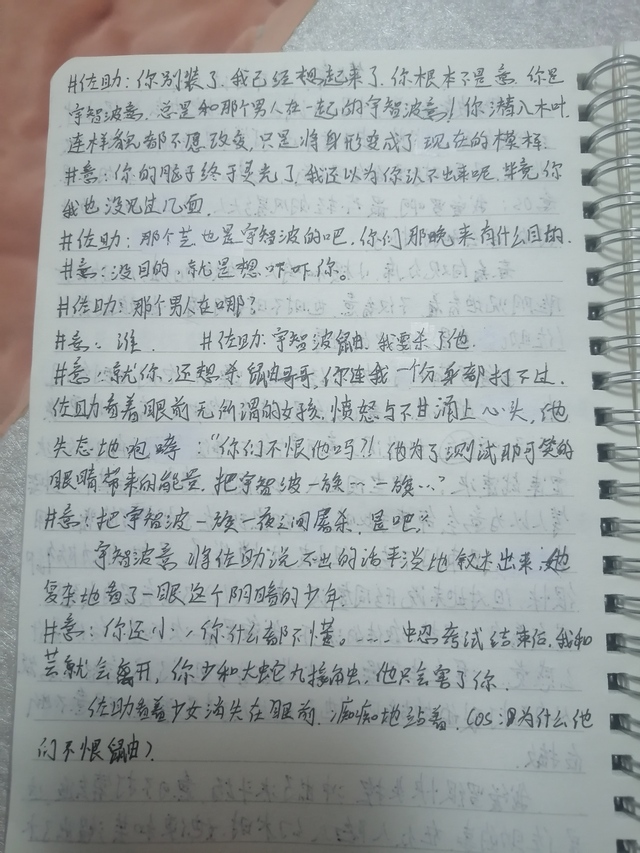 #佐助：你别装了，我已经想起来了，你根本不是意，你是
宇智波意，总是和那个男人在一起的宇智波意！你潜入木叶，
连样貌都不愿改变，只是将身形变成了现在的模样.
#意：你的脑子终于灵光了，我还以为你认不出来呢，毕竟你
我也没见过几面.
#佐助：那个芸也是宇智波的吧，你们那晚来有什么目的.
#意：没目的，就是想吓吓你。
#佐助：那个男人在哪？
#意：谁. #佐助：宇智波鼬，我要杀了他.
#意：就你，还想杀鼬哥哥，你连我一个分身都打不过.
佐助看着眼前无所谓的女孩，愤怒与不甘涌上心头，他
失态地咆哮："你们不恨他吗？！他为了测试那可笑的
眼睛带来的能量，把宇智波一族……一族…？
#意：把宇智波一族一夜之间屠杀，是吧？
宇智波意将佐助说不出的话平淡地叙述出来，她
复杂地看了一眼这个阴暗的少年.
#意：你还小，你什么都不懂。……中忍考试结束后，我和
芸就会离开，你少和大蛇丸接触，他只会害了你.
佐助看着少女消失在眼前，痴痴地站着，(os：为什么他
们不恨鼬)